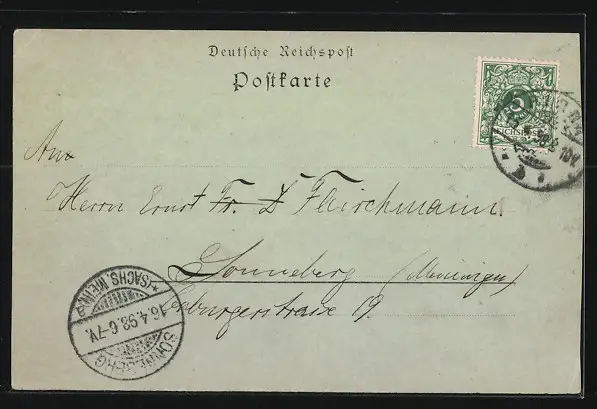 Deutsche Reichspost
Postkarte
An
Herrn Ernst Fr. & Fleischmann
Sonneberg (Meiningen)
burgerstrasse 19.
SONNEBERG
*(SACHS. MEIN.)*
16.4.98.6-7V.